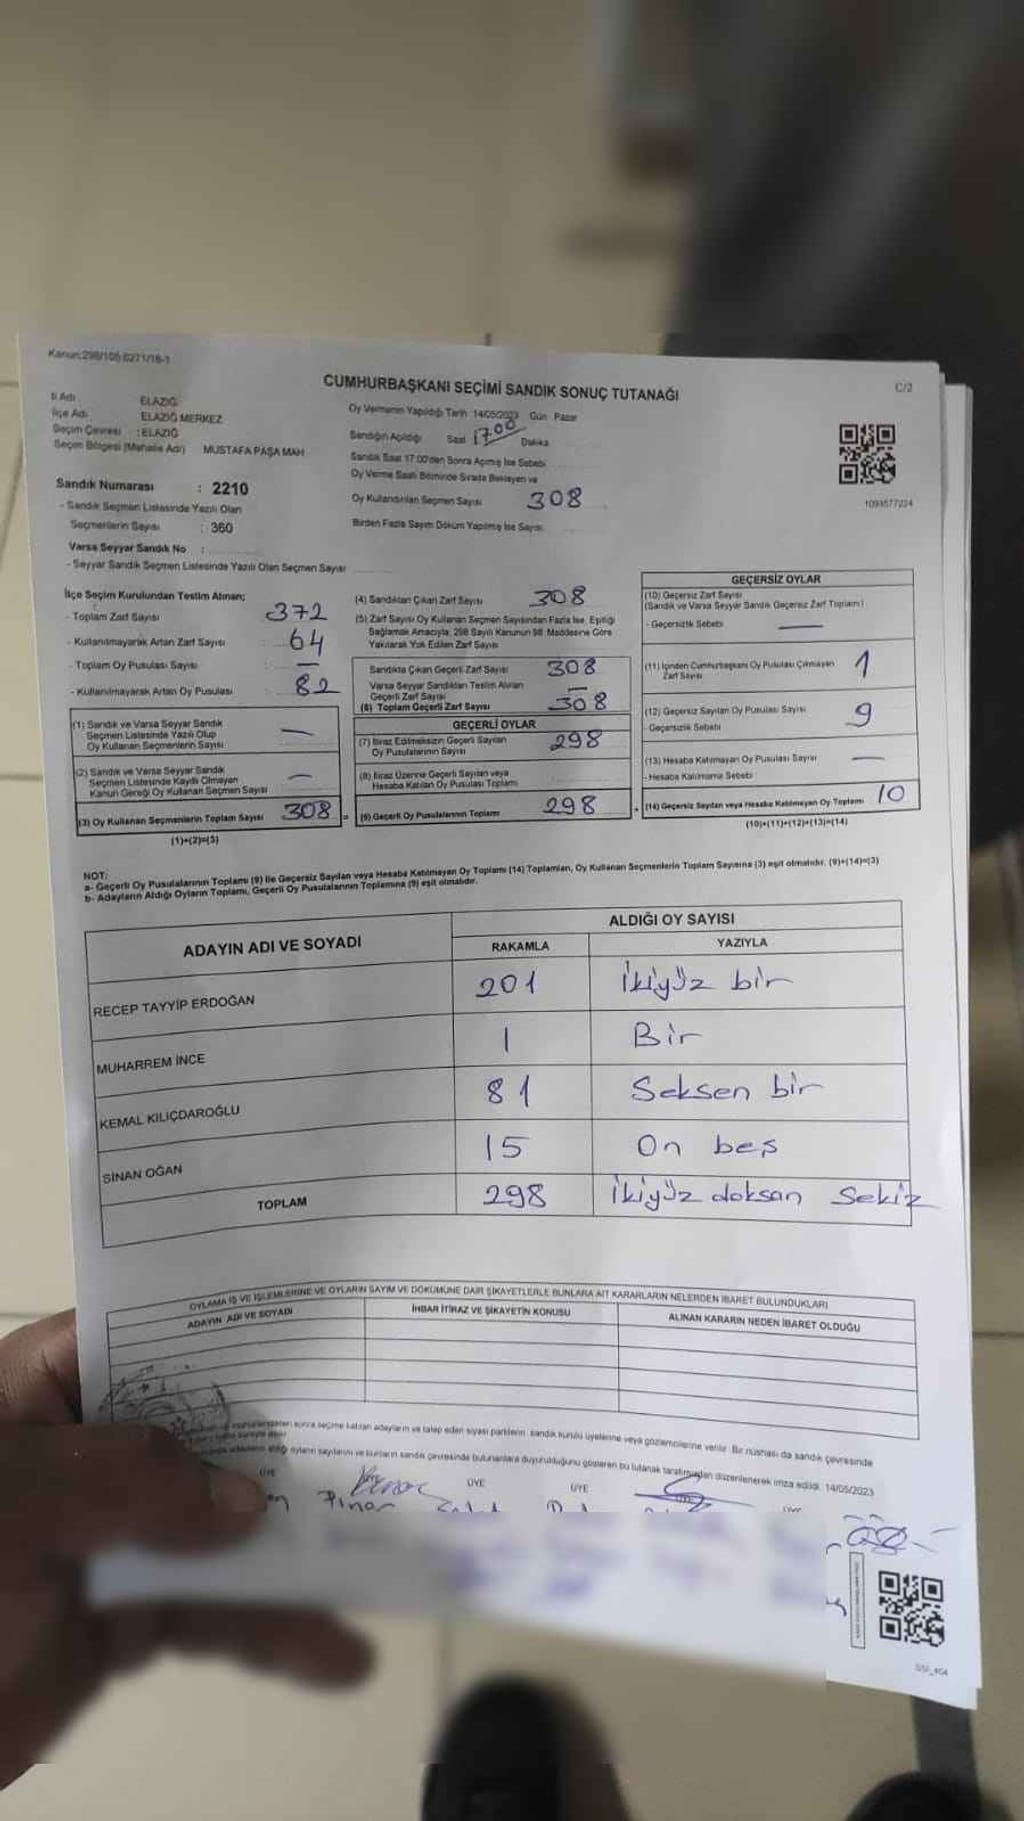 Kanun:298/105 6271/18-1
C/2
CUMHURBAŞKANI SEÇİMİ SANDIK SONUÇ TUTANAĞI
İl Adı ELAZIĞ
İlçe Adı ELAZIĞ MERKEZ
Seçim Çevresi : ELAZIĞ
Seçim Bölgesi (Mahalle Adı) MUSTAFA PAŞA MAH
Sandık Numarası : 2210
- Sandık Seçmen Listesinde Yazılı Olan
Seçmenlerin Sayısı : 360
Varsa Seyyar Sandık No :
- Seyyar Sandık Seçmen Listesinde Yazılı Olan Seçmen Sayısı
Oy Vermenin Yapıldığı Tarih 14/05/2023 Gün Pazar
Sandığın Açıldığı Saat 1700 Dakika
Sandık Saat 17:00'den Sonra Açılmış İse Sebebi
Oy Verme Saati Bitiminde Sırada Bekleyen ve
Oy Kullandırılan Seçmen Sayısı 308
Birden Fazla Sayım Döküm Yapılmış İse Sayısı
1093577224
İlçe Seçim Kurulundan Teslim Alınan;
- Toplam Zarf Sayısı : 372
- Kullanılmayarak Artan Zarf Sayısı : 64
- Toplam Oy Pusulası Sayısı : —
- Kullanılmayarak Artan Oy Pusulası : 82
(1) Sandık ve Varsa Seyyar Sandık
Seçmen Listesinde Yazılı Olup
Oy Kullanan Seçmenlerin Sayısı —
(2) Sandık ve Varsa Seyyar Sandık
Seçmen Listesinde Kayıtlı Olmayan
Kanun Gereği Oy Kullanan Seçmen Sayısı —
(3) Oy Kullanan Seçmenlerin Toplam Sayısı 308 =
(1)+(2)=(3)
(4) Sandıktan Çıkan Zarf Sayısı 308
(5) Zarf Sayısı Oy Kullanan Seçmen Sayısından Fazla İse, Eşitliği
Sağlamak Amacıyla, 298 Sayılı Kanunun 98. Maddesine Göre
Yakılarak Yok Edilen Zarf Sayısı
Sandıkta Çıkan Geçerli Zarf Sayısı 308
Varsa Seyyar Sandıktan Teslim Alınan
Geçerli Zarf Sayısı —
(6) Toplam Geçerli Zarf Sayısı 308
GEÇERLİ OYLAR
(7) İtiraz Edilmeksizin Geçerli Sayılan
Oy Pusulalarının Sayısı 298
(8) İtiraz Üzerine Geçerli Sayılan veya
Hesaba Katılan Oy Pusulası Toplamı
(9) Geçerli Oy Pusulalarının Toplamı 298 +
GEÇERSİZ OYLAR
(10) Geçersiz Zarf Sayısı
(Sandık ve Varsa Seyyar Sandık Geçersiz Zarf Toplamı)
- Geçersizlik Sebebi —
(11) İçinden Cumhurbaşkanı Oy Pusulası Çıkmayan
Zarf Sayısı 1
(12) Geçersiz Sayılan Oy Pusulası Sayısı 9
- Geçersizlik Sebebi
(13) Hesaba Katılmayan Oy Pusulası Sayısı —
- Hesaba Katılmama Sebebi
(14) Geçersiz Sayılan veya Hesaba Katılmayan Oy Toplamı 10
(10)+(11)+(12)+(13)=(14)
NOT:
a- Geçerli Oy Pusulalarının Toplamı (9) ile Geçersiz Sayılan veya Hesaba Katılmayan Oy Toplamı (14) Toplamları, Oy Kullanan Seçmenlerin Toplam Sayısına (3) eşit olmalıdır. (9)+(14)=(3)
b- Adayların Aldığı Oyların Toplamı, Geçerli Oy Pusulalarının Toplamına (9) eşit olmalıdır.
ADAYIN ADI VE SOYADI ALDIĞI OY SAYISI
RAKAMLA YAZIYLA
RECEP TAYYİP ERDOĞAN 201 İkiyüz bir
MUHARREM İNCE 1 Bir
KEMAL KILIÇDAROĞLU 81 Seksen bir
SİNAN OĞAN 15 On beş
TOPLAM 298 İkiyüz doksan Sekiz
OYLAMA İŞ VE İŞLEMLERİNE VE OYLARIN SAYIM VE DÖKÜMÜNE DAİR ŞİKAYETLERLE BUNLARA AİT KARARLARIN NELERDEN İBARET BULUNDUKLARI
ADAYIN ADI VE SOYADI İHBAR İTİRAZ VE ŞİKAYETİN KONUSU ALINAN KARARIN NEDEN İBARET OLDUĞU
sonra seçime katılan adayların ve talep eden siyasi partilerin sandık kurulu üyelerine veya gözlemcilerine verilir. Bir nüshası da sandık çevresinde
aldığı oyların sayılarını ve bunların sandık çevresinde bulunanlara duyurulduğunu gösteren bu tutanak tarafımızdan düzenlenerek imza edildi. 14/05/2023
ÜYE ÜYE ÜYE
Pınar